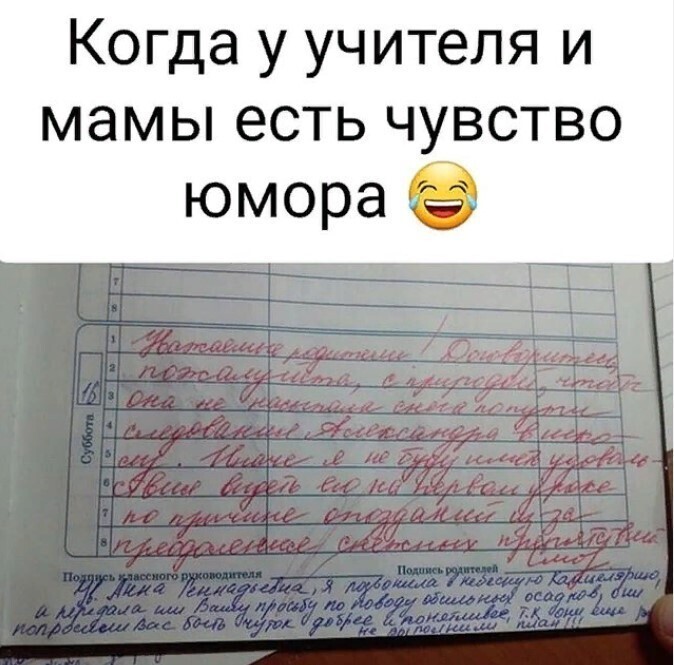 Когда у учителя и
мамы есть чувство
юмора 😂
7
8
1 Уважаемые родители! Договоритесь,
2 пожалуйста, с природой, чтобы
16 3 она не насыпала снега по пути
Суббота 4 следования Александра в шко-
5 лу. Иначе я не буду иметь удоволь-
6 ствия видеть его на первом уроке
7 по причине опозданий из за
8 преодоление снежных препятствий
Подпись классного руководителя Подпись родителей
Ув. Анна Геннадьевна, я позвонила в небесную канцелярию,
и передала им Вашу просьбу по поводу обильных осадков, они
попросили Вас быть чуток добрее и понятливее, т.к они еще
не выполнили план!!!